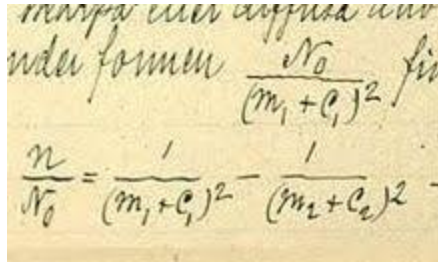 skarpa eller diffusa
under formen N₀/(m₁ + c₁)²
n/N₀ = 1/(m₁ + c₁)² - 1/(m₂ + c₂)²